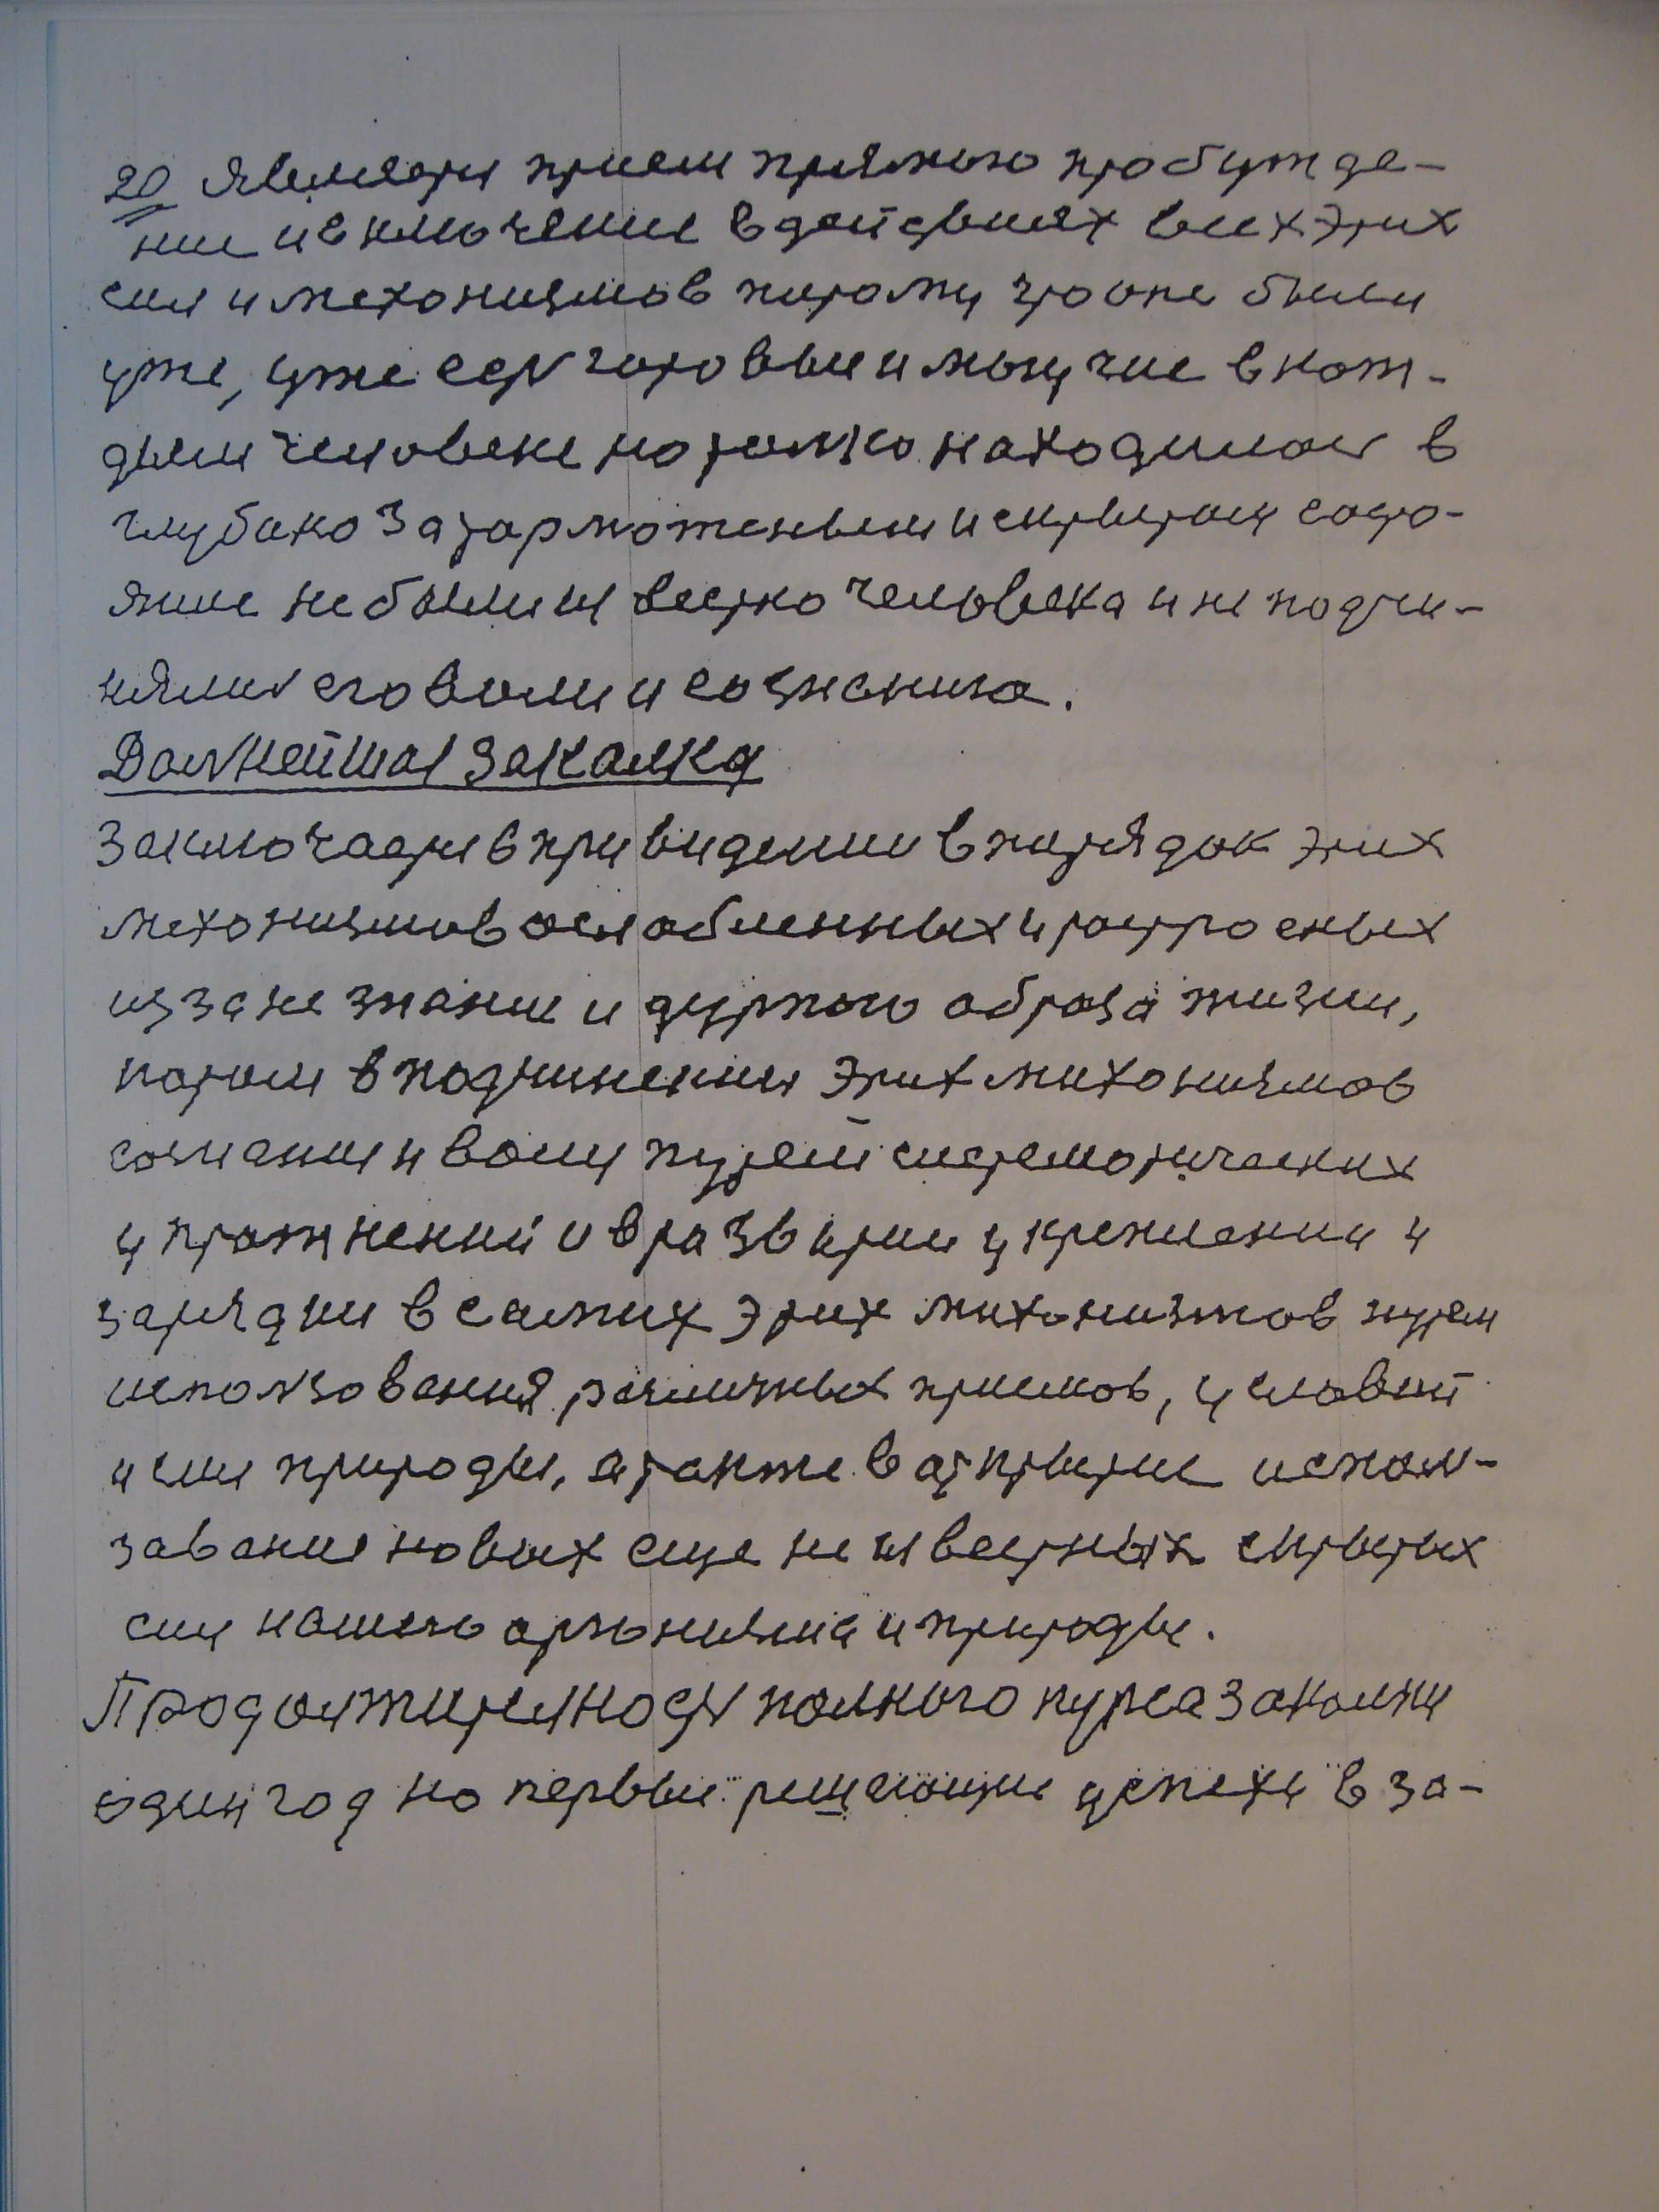 20 Являетси прием прямого пробужде-
ние и включение в действиях всих этих
сил и механизмов потому что оне были
уже, уже есть готовые и могучие в каж-
дым человеке но только находилось в
глубоко заторможеным и скрытом состо-
яние небыли известно человека и не подчи-
нялись его воли и сознаниюа.
Далнейшая Закалка
Заключаетси в привидении в порядок этих
механизмов ослабленных и растроеных
из за не знание и дурного образа жизни,
потом в подчинении этих миханизмов
сознании и волй путем системотических
упражнений и в развитии укреплении и
зарядки в самих этих миханизмов путем
исползования различных приемов, условий
и сил природы, а также в открытие исполь-
завание новых еще не известных скрытых
сил нашего организма и природы.
Продолжителность полного курса закалки
один год но первые решающие успехи в за-